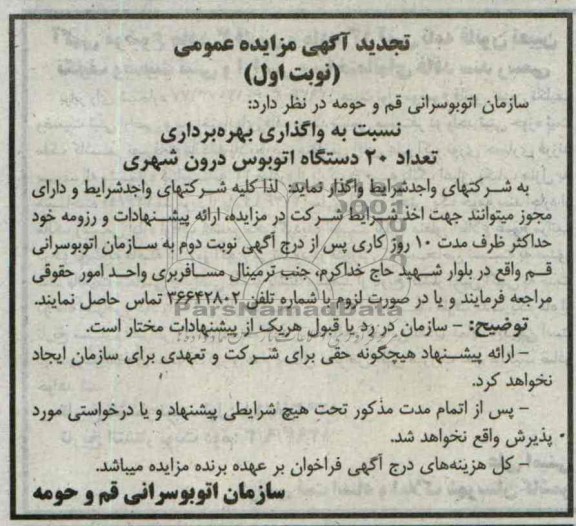 تجدید آگهی مزایده عمومی
(نوبت اول)
سازمان اتوبوسرانی قم و حومه در نظر دارد:
نسبت به واگذاری بهره‌برداری
تعداد ۲۰ دستگاه اتوبوس درون شهری
به شرکتهای واجدشرایط واگذار نماید: لذا کلیه شرکتهای واجدشرایط و دارای
مجوز میتوانند جهت اخذ شرایط شرکت در مزایده، ارائه پیشنهادات و رزومه خود
حداکثر ظرف مدت ۱۰ روز کاری پس از درج آگهی نوبت دوم به سازمان اتوبوسرانی
قم واقع در بلوار شهید حاج خداکرم، جنب ترمینال مسافربری واحد امور حقوقی
مراجعه فرمایند و یا در صورت لزوم با شماره تلفن ۳۶۶۴۲۸۰۲ تماس حاصل نمایند.
ParsNamadData
توضیح: - سازمان در رد یا قبول هریک از پیشنهادات مختار است.
- ارائه پیشنهاد هیچگونه حقی برای شرکت و تعهدی برای سازمان ایجاد
نخواهد کرد.
- پس از اتمام مدت مذکور تحت هیچ شرایطی پیشنهاد و یا درخواستی مورد
پذیرش واقع نخواهد شد.
- کل هزینه‌های درج آگهی فراخوان بر عهده برنده مزایده میباشد.
سازمان اتوبوسرانی قم و حومه